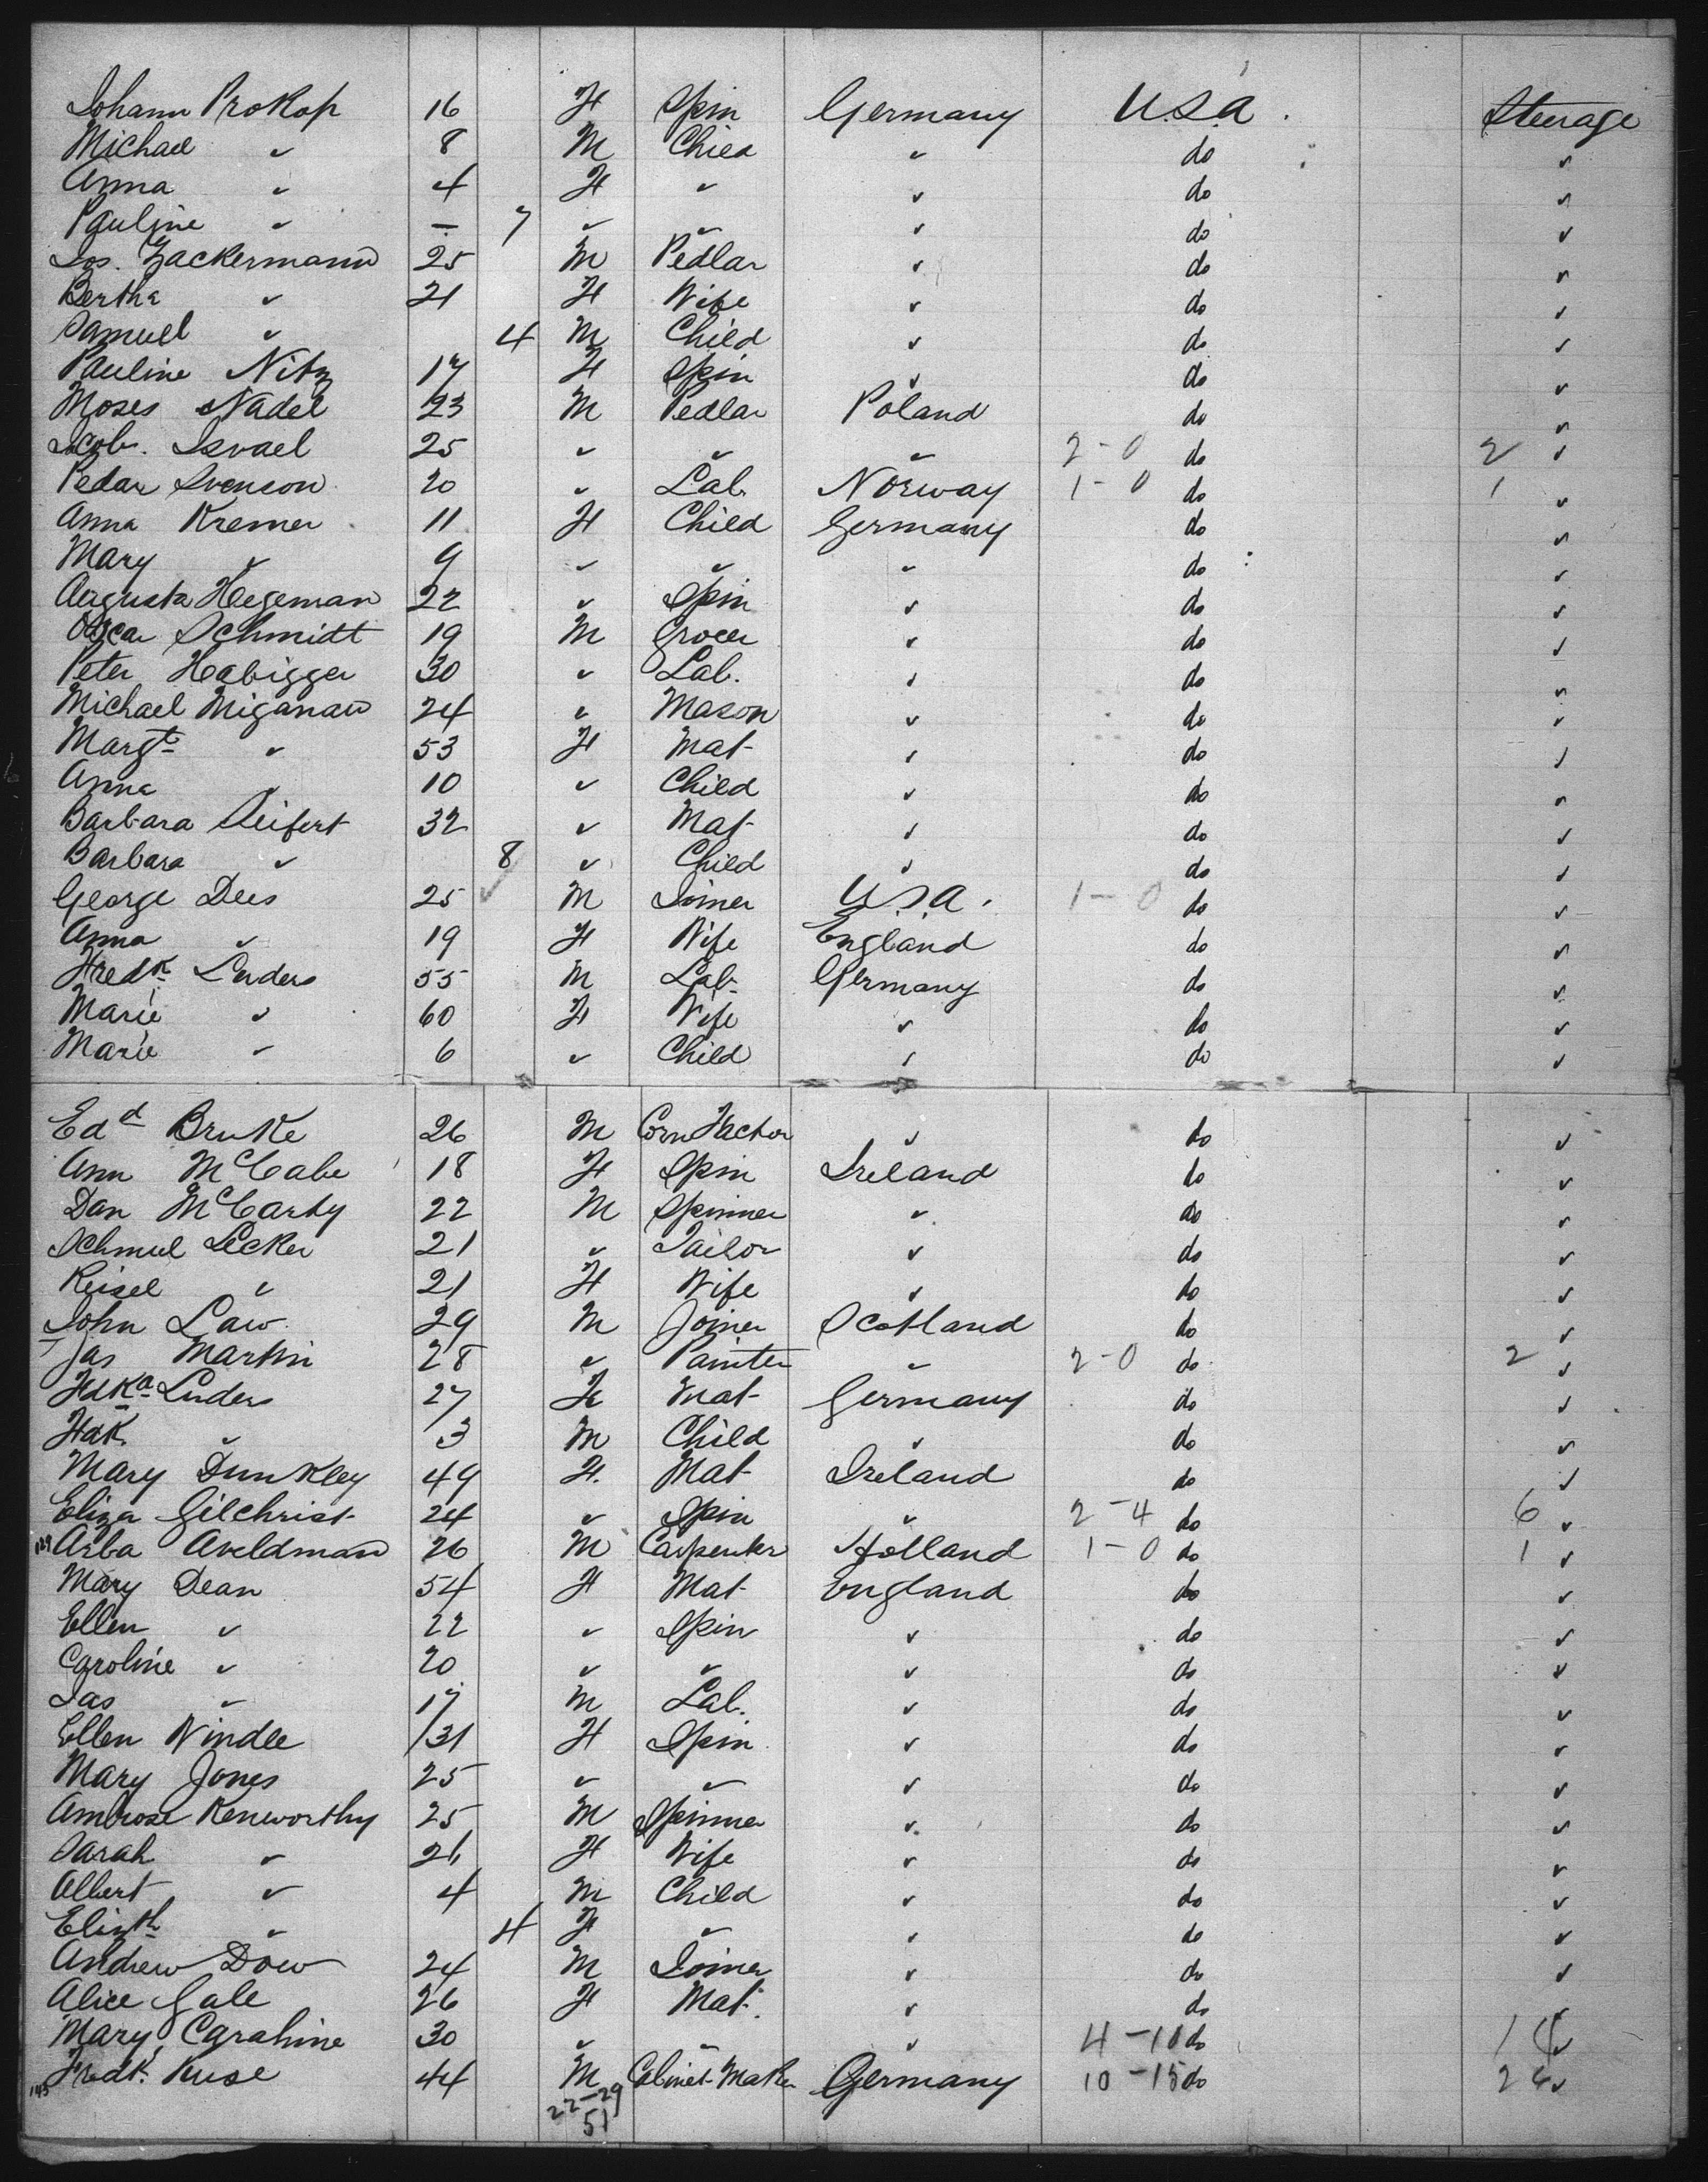 Johann Prokop 16 F Spin Germany U.S.A. Steerage
Michael " 8 M Child " do "
Anna " 4 F " " do "
Pauline " – 7 " " " do "
Jos. Zackermann 25 M Pedlar " do "
Bertha " 21 F Wife " do "
Samuel " 4 M Child " do "
Pauline Nitz 17 F Spin " do "
Moses Nadel 23 M Pedlar Poland do "
Jacob. Israel 25 " " " 2-0 do 2 "
Pedar Svenson 20 " Lab. Norway 1-0 do 1 "
Anna Kremer 11 F Child Germany do "
Mary " 9 " " " do "
Augusta Hegeman 22 " Spin " do "
Oscar Schmidt 19 M Grocer " do "
Peter Habigger 30 " Lab. " do "
Michael Miganaw 24 " Mason " do "
Margt " 53 F Mat " do "
Anna " 10 " Child " do "
Barbara Seifert 32 " Mat " do "
Barbara " 8 " Child " do "
George Dees 25 M Joiner U.S.A. 1-0 do "
Anna " 19 F Wife England do "
Fredk Luders 55 M Lab Germany do "
Marie " 60 F Wife " do "
Marie " 6 " Child " do "
Edd Bruke 26 M Corn Factor " do "
Ann McCabe 18 F Spin Ireland do "
Dan McCarty 22 M Spinner " do "
Schmul Lecker 21 " Tailor " do "
Reisel " 21 F Wife " do "
John Law 29 M Joiner Scotland do "
Jas Martin 28 " Painter " 2-0 do 2 "
Fdka Luders 27 F Mat Germany do "
Fdk " 3 M Child " do "
Mary Dunkley 49 F. Mat Ireland do "
Eliza Gilchrist 24 " Spin " 2-4 do 6 "
Arba Aveldman 26 M Carpenter Holland 1-0 do 1 "
Mary Dean 54 F Mat England do "
Ellen " 22 " Spin " do "
Caroline " 20 " " " do "
Jas " 17 M Lab. " do "
Ellen Windle 31 F Spin " do "
Mary Jones 25 " " " do "
Ambrose Kenworthy 25 M Spinner " do "
Sarah " 26 F Wife " do "
Albert " 4 M Child " do "
Elizth " 4 F " " do "
Andrew Dow 24 M Joiner " do "
Alice Gale 26 F Mat. " do "
Mary Carahine 30 " " " 4-10 do 14 "
145 Fredk. Kuse 44 M Cabinet Maker Germany 10-15 do "
22-29
51